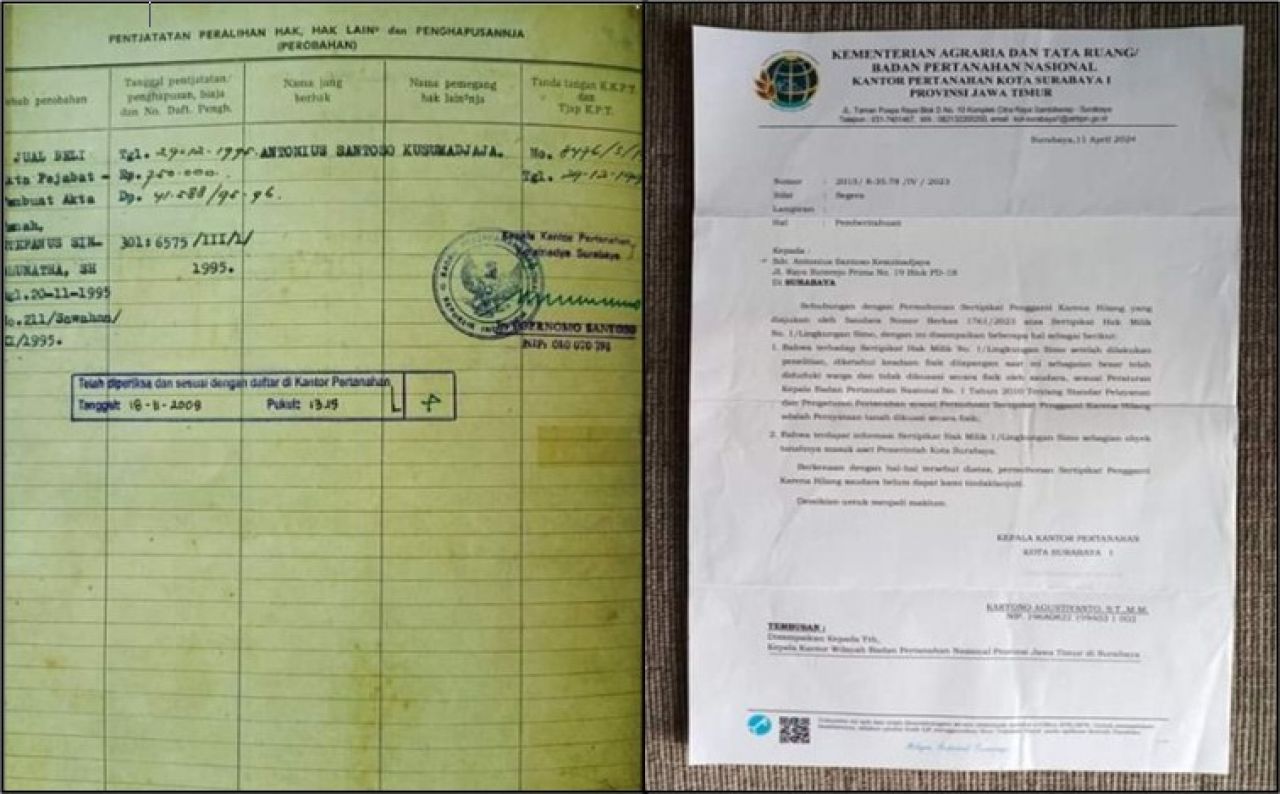 PENTJATATAN PERALIHAN HAK, HAK LAIN² dan PENGHAPUSANNJA
(PEROBAHAN)
perobahan
Tanggal pentjatatan/
penghapusan, biaja
dan No. Daft. Pengh.
Nama jang
berhak
Nama pemegang
hak lain²nja
Tanda tangan K.K.P.T.
dan
Tjap K.P.T.
JUAL BELI
Tgl. 29-12-1995
ANTONIUS SANTOSO KUSUMADJAJA.
No.
Pejabat -
Rp. 750.000.-
Tgl. 29-12-
Akta
Dp. 41.588/95-96.
301:6575/III/1/
1995.
SH
20-11-1995
211/Sawahan/
/1995.
Kepala Kantor Pertanahan,
Surabaya
SANTOSO
NIP: 010 070 798
Telah diperiksa dan sesuai dengan daftar di Kantor Pertanahan
Tanggal: 18-11-2009 Pukul: 13.15
KEMENTERIAN AGRARIA DAN TATA RUANG/
BADAN PERTANAHAN NASIONAL
KANTOR PERTANAHAN KOTA SURABAYA I
PROVINSI JAWA TIMUR
Surabaya, 11 April 2024
Nomor : 2015/ 8-35.78 /IV / 2023
Sifat : Segera
Lampiran :
Hal : Pemberitahuan
Kepada :
Sdr. Antonius Santoso Kesumadjaya
Jl. Raya Sutorejo Prima No. 19 Blok PD-18
Di SURABAYA
Sehubungan dengan Permohonan Sertipikat Pengganti Karena Hilang yang
diajukan oleh Saudara Nomor Berkas 1761/2023 atas Sertipikat Hak Milik
No. 1/Lingkungan Simo, dengan ini disampaikan beberapa hal sebagai berikut:
1. Bahwa terhadap Sertipikat Hak Milik No. 1/Lingkungan Simo setelah dilakukan
penelitian, diketahui keadaan fisik dilapangan saat ini sebagian besar telah
diduduki warga dan tidak dikuasai secara fisik oleh saudara, sesuai Peraturan
Kepala Badan Pertanahan Nasional No. 1 Tahun 2010 Tentang Standar Pelayanan
dan Pengaturan Pertanahan syarat Permohonan Sertipikat Pengganti Karena Hilang
adalah Pernyataan tanah dikuasai secara fisik.
2. Bahwa terdapat informasi Sertipikat Hak Milik 1/Lingkungan Simo sebagian obyek
tanahnya masuk aset Pemerintah Kota Surabaya.
Berkenaan dengan hal-hal tersebut diatas, permohonan Sertipikat Pengganti
Karena Hilang saudara belum dapat kami tindaklanjuti.
Demikian untuk menjadi maklum.
KEPALA KANTOR PERTANAHAN
KOTA SURABAYA I
KARTONO AGUSTIYANTO, S.T.,M.M.
TEMBUSAN :
Disampaikan Kepada Yth,
Kepala Kantor Wilayah Badan Pertanahan Nasional Provinsi Jawa Timur di Surabaya